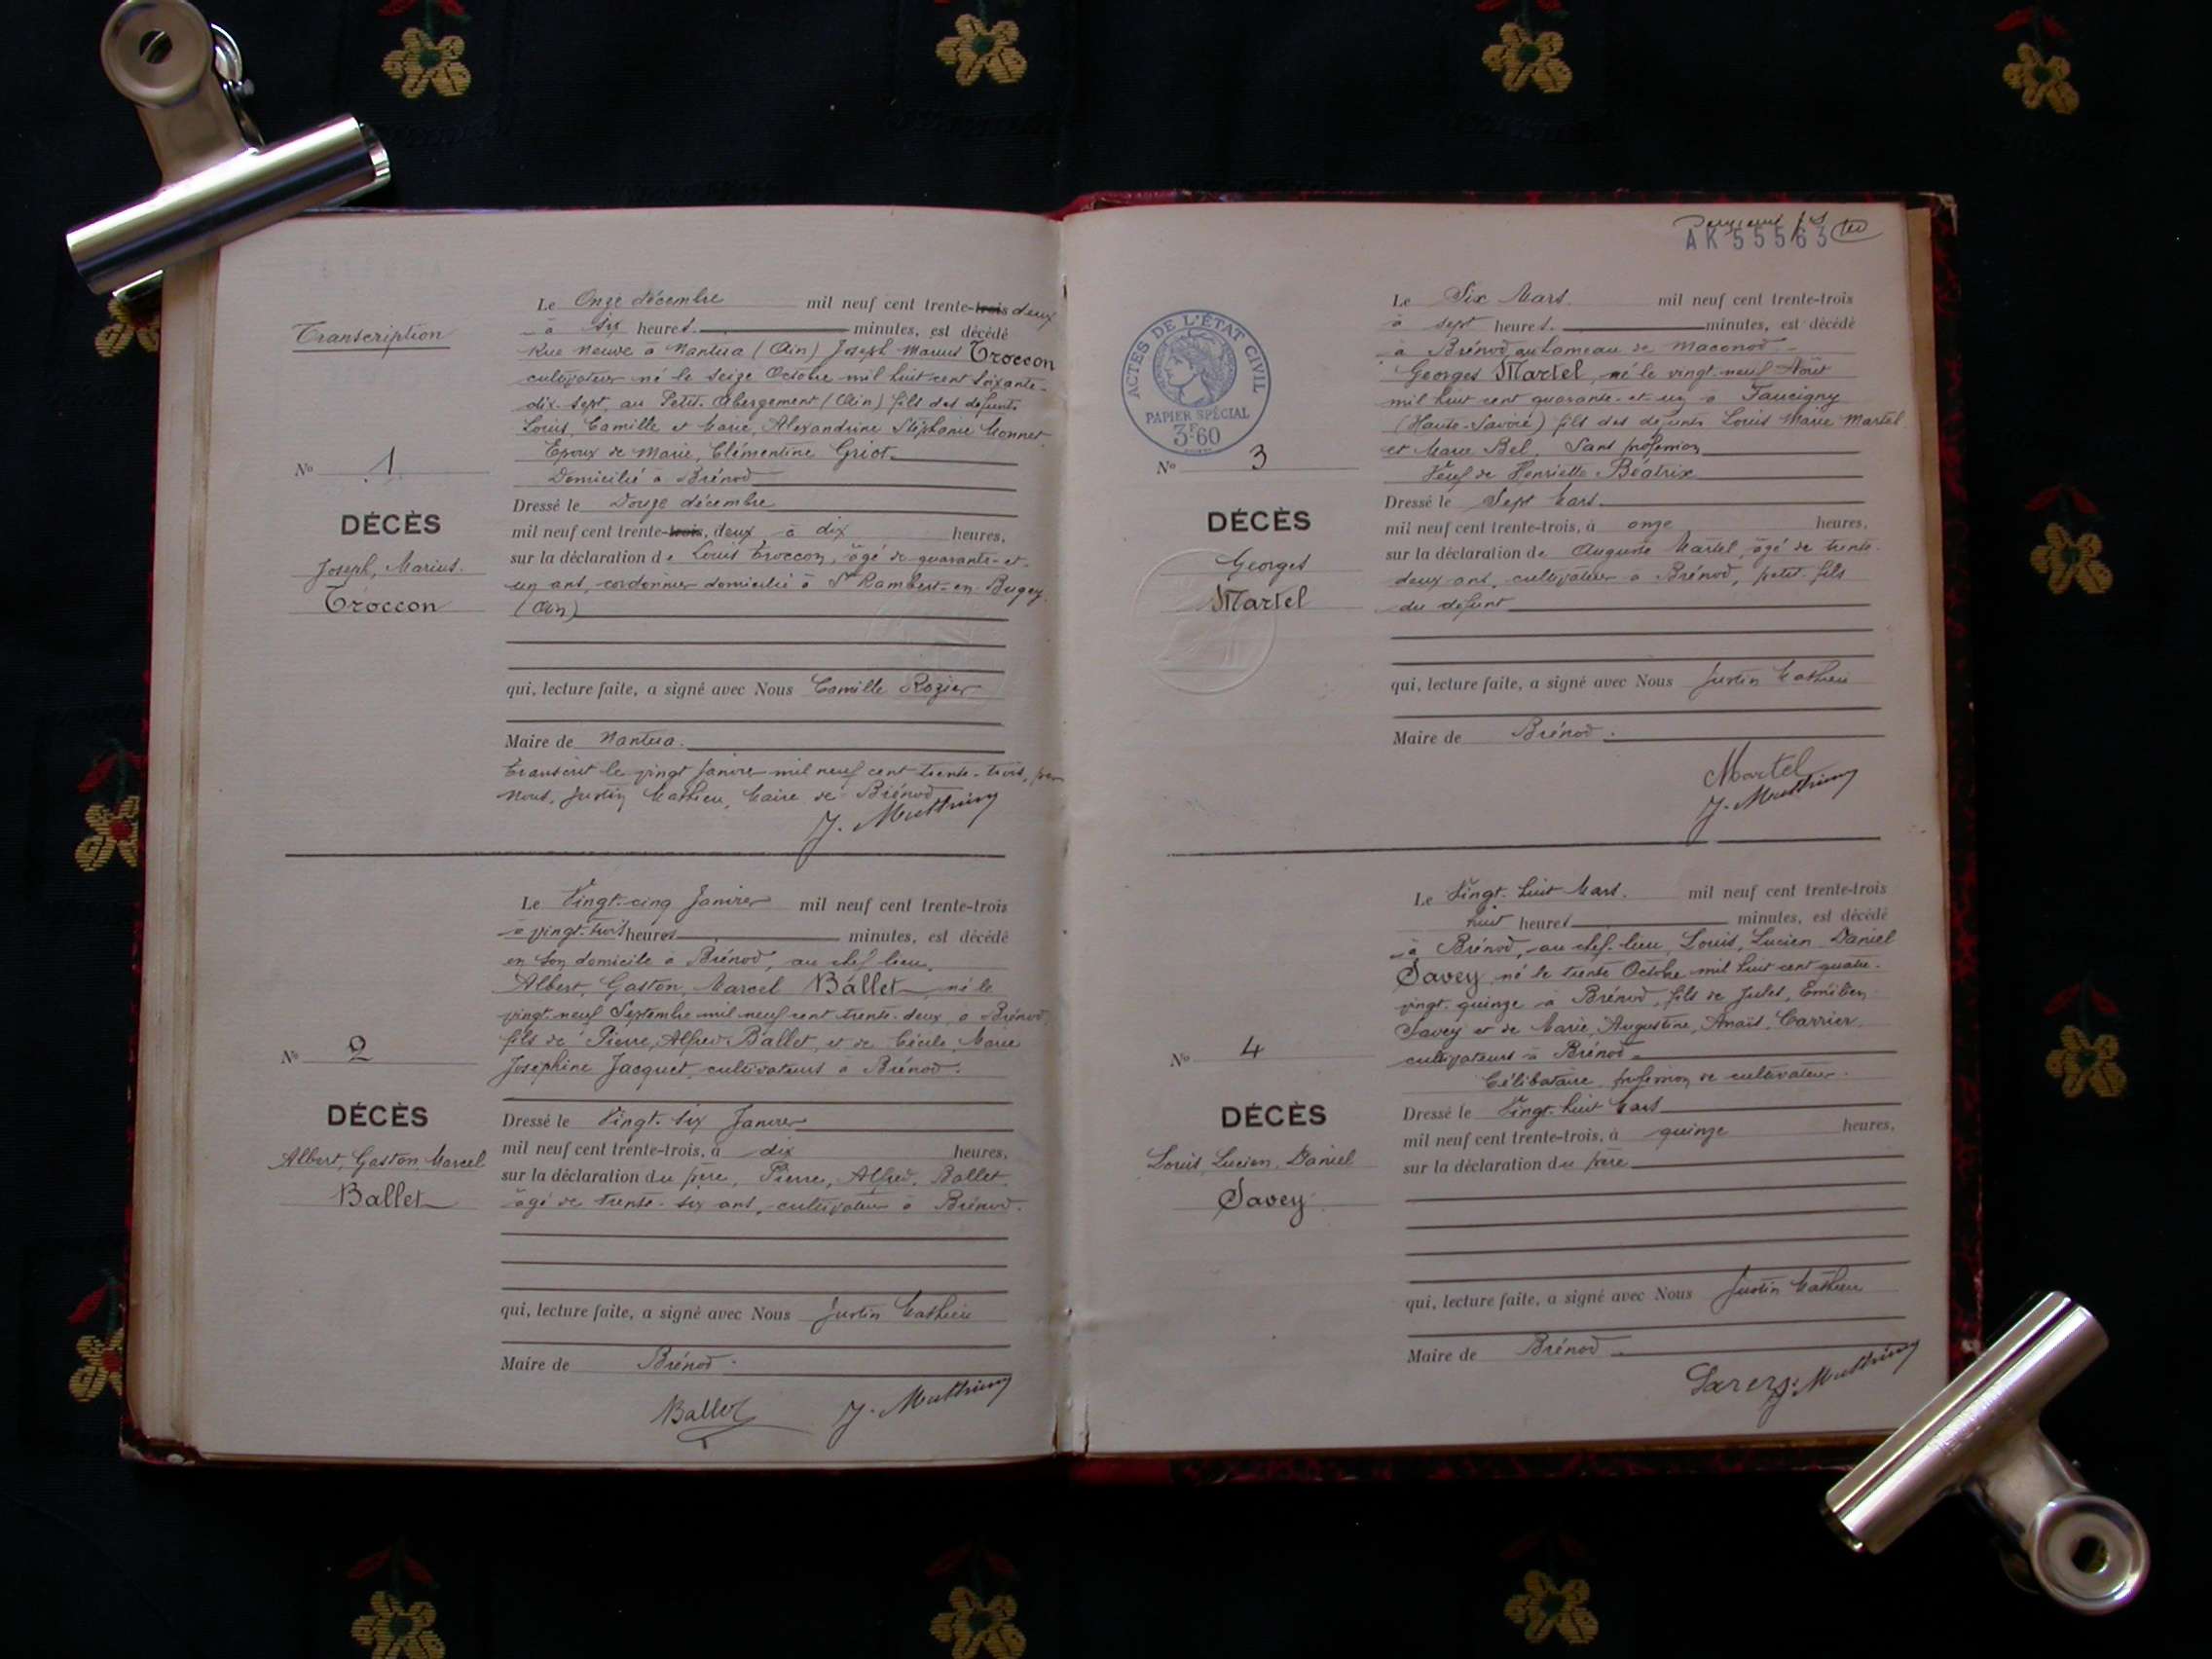 Transcription
Le Onze décembre mil neuf cent trente-trois deux
à six heures minutes, est décédé
Rue Neuve à Nantua (Ain) Joseph Marius Troccon
cultivateur né le seize Octobre mil huit cent soixante-
dix-sept, au Petit-Abergement (Ain) fils des défunts
Louis, Camille et Marie, Alexandrine Stéphanie Monnet
Epoux de Marie, Clémentine Griot
Domicilié à Brénod
Nº 1
DÉCÈS
Joseph, Marius.
Troccon
Dressé le Douze décembre
mil neuf cent trente-trois, deux, à dix heures,
sur la déclaration de Louis Troccon, âgé de quarante-et-
un ans, cordonnier domicilié à St Rambert-en-Bugey.
(Ain)
qui, lecture faite, a signé avec Nous Camille Rozier
Maire de Nantua.
Transcrit le vingt Janvier mil neuf cent trente-trois, par
nous, Justin Mathieu, Maire de Brénod
J. Mathieu
Le Vingt-cinq Janvier mil neuf cent trente-trois
à vingt-trois heures minutes, est décédé
en son domicile à Brénod, au chef-lieu,
Albert, Gaston, Marcel Ballet, né le
vingt-neuf Septembre mil neuf cent trente-deux, à Brénod,
fils de Pierre, Alfred Ballet, et de Cécile, Marie
Joséphine Jacquet, cultivateurs à Brénod.
Nº 2
DÉCÈS
Albert, Gaston, Marcel
Ballet
Dressé le Vingt-six Janvier
mil neuf cent trente-trois, à dix heures,
sur la déclaration du père, Pierre, Alfred, Ballet,
âgé de trente-six ans, cultivateur à Brénod.
qui, lecture faite, a signé avec Nous Justin Mathieu
Maire de Brénod.
Ballet J. Mathieu
AK 55563
ACTES DE L'ÉTAT CIVIL
PAPIER SPÉCIAL
3F60
Le Six Mars. mil neuf cent trente-trois
à sept heures. minutes, est décédé
à Brénod, au hameau de Maconod
Georges Martel, né le vingt-neuf Août
mil huit cent quarante-et-un à Faucigny
(Haute-Savoie) fils des défunts Louis Marie Martel
et Marie Bel, Sans profession
Veuf de Henriette Béatrix
Nº 3
DÉCÈS
Georges
Martel
Dressé le Sept Mars
mil neuf cent trente-trois, à onze heures,
sur la déclaration de Auguste Martel, âgé de trente-
deux ans, cultivateur à Brénod, petit-fils
du défunt
qui, lecture faite, a signé avec Nous Justin Mathieu
Maire de Brénod.
Martel
J. Mathieu
Le Vingt-huit Mars. mil neuf cent trente-trois
huit heures minutes, est décédé
à Brénod, au chef-lieu, Louis, Lucien Daniel
Savey né le trente Octobre mil huit cent quatre-
vingt-quinze à Brénod, fils de Jules, Emilien
Savey et de Marie, Augustine, Anaïs, Carrier,
cultivateurs à Brénod
Célibataire, profession de cultivateur.
Nº 4
DÉCÈS
Louis, Lucien, Daniel
Savey
Dressé le Vingt-huit Mars
mil neuf cent trente-trois, à quinze heures,
sur la déclaration du père
qui, lecture faite, a signé avec Nous Justin Mathieu
Maire de Brénod
Savey J. Mathieu